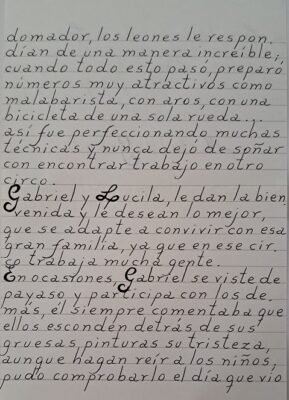 domador, los leones le respon.
dían de una manera increíble;
cuando todo esto pasó, preparó
números muy atráctivos como
malabarista, con aros, con una
bicicleta de una sola rueda...
así fue perfeccionando muchas
técnicas y nunca dejó de soñar
con encontrar trabajo en otro
circo.
Gabriel y Lucila, le dan la bien
venida y le desean lo mejor,
que se adapte a convivir con esa
gran familia, ya que en ese cir.
co trabaja mucha gente.
En ocasiones, Gabriel se viste de
payaso y participa con los de.
más, el siempre comentaba que
ellos esconden detrás de sus
gruesas pinturas su tristeza,
aunque hagan reír a los niños;
pudo comprobarlo el día que vio